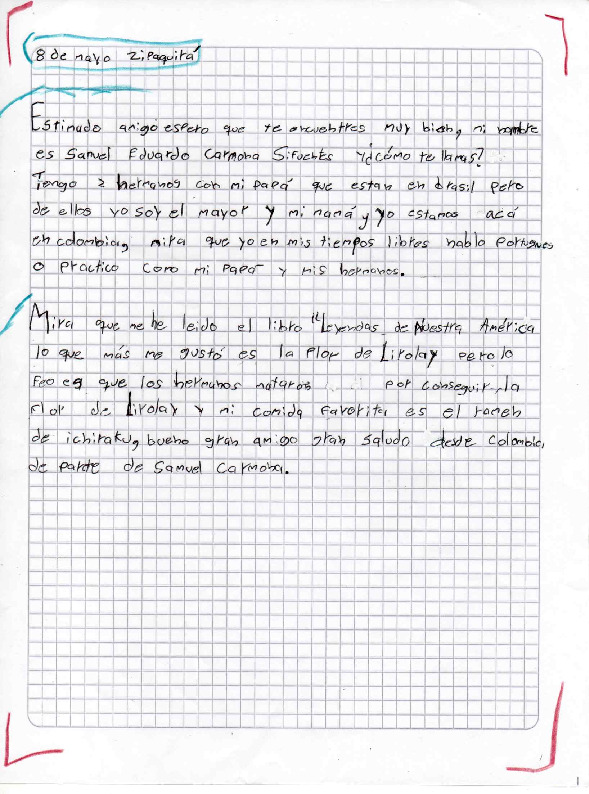 8 de mayo Zipaquirá
Estimado amigo espero que te encuentres muy bien, mi nombre
es Samuel Eduardo Carmona Sifuentes y ¿cómo te llamas?
Tengo 2 hermanos con mi papá que estan en brasil pero
de ellos yo soy el mayor y mi mamá y yo estamos acá
en colombia, mira que yo en mis tiempos libres hablo Portugues
o practico como mi papá y mis hermanos.
Mira que me he leido el libro "Leyendas de Nuestra América
lo que más me gustó es la flor de Lirolay pero lo
feo es que los hermanos mataron por conseguir la
flor de Lirolay y mi comida favorita es el ramen
de ichiraku, bueno gran amigo gran saludo desde Colombia,
de parte de Samuel Carmona.